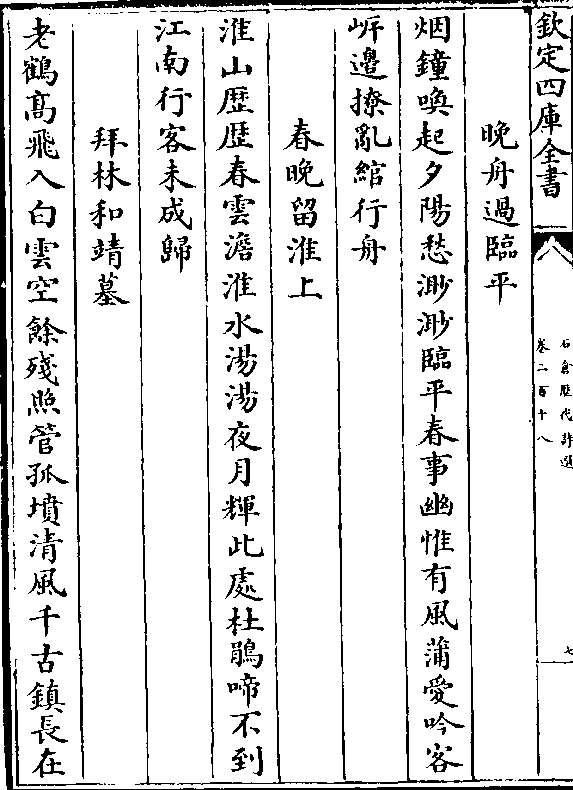 欽定四庫全書
石倉歷代詩選
卷二百十八
七
晚舟過臨平
烟鐘喚起夕陽愁渺渺臨平春事幽惟有風蒲愛吟客
岍邉撩亂綰行舟
春晚留淮上
淮山歴歴春雲澹淮水湯湯夜月輝此處杜鵑啼不到
江南行客未成歸
拜林和靖墓
老鶴髙飛入白雲空餘殘照管孤墳清風千古鎮長在